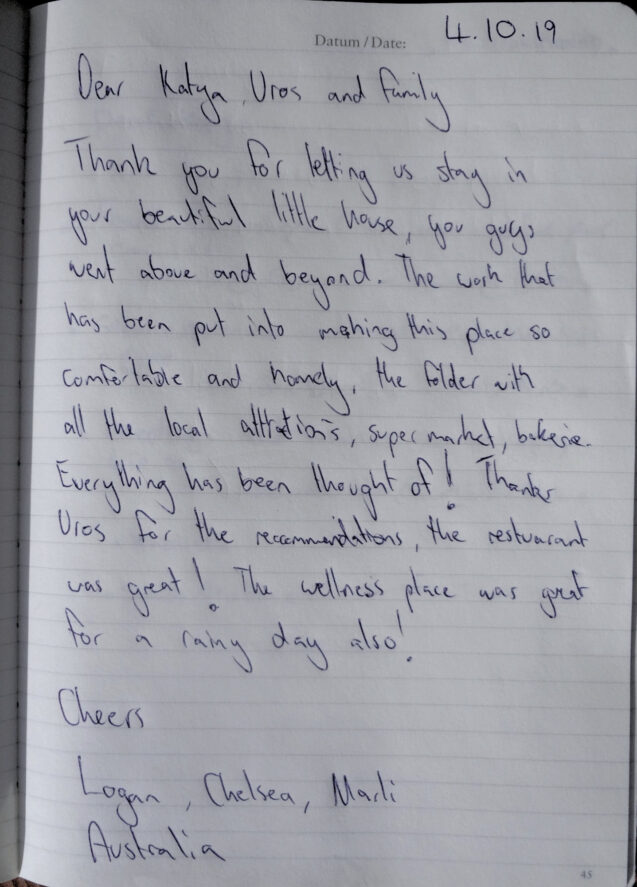 Datum / Date: 4.10.19
Dear Katya, Uros and family
Thank you for letting us stay in
your beautiful little house, you guys
went above and beyond. The work that
has been put into making this place so
comfertable and homely, the folder with
all the local atttrations, super market, bakerie.
Everything has been thought of! Thanks
Uros for the recommendations, the restuarant
was great! The wellness place was great
for a rainy day also!
Cheers
Logan, Chelsea, Marli
Australia
45